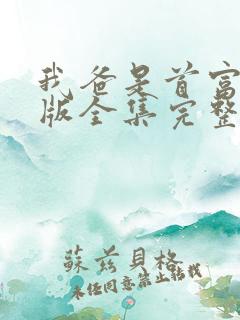 我爸是首富
版全集完整
蘇茲貝格
未经同意禁止转载